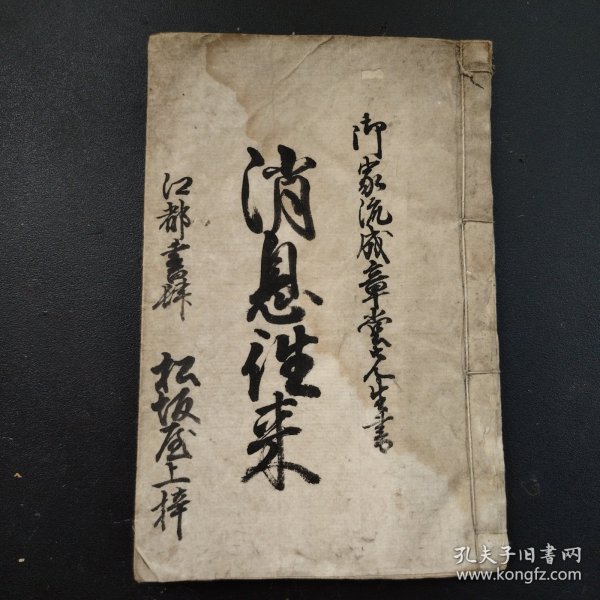 御家流成章堂先生書
消息往来
江都書肆 松坂屋上梓
孔夫子旧书网
www.kongfz.com